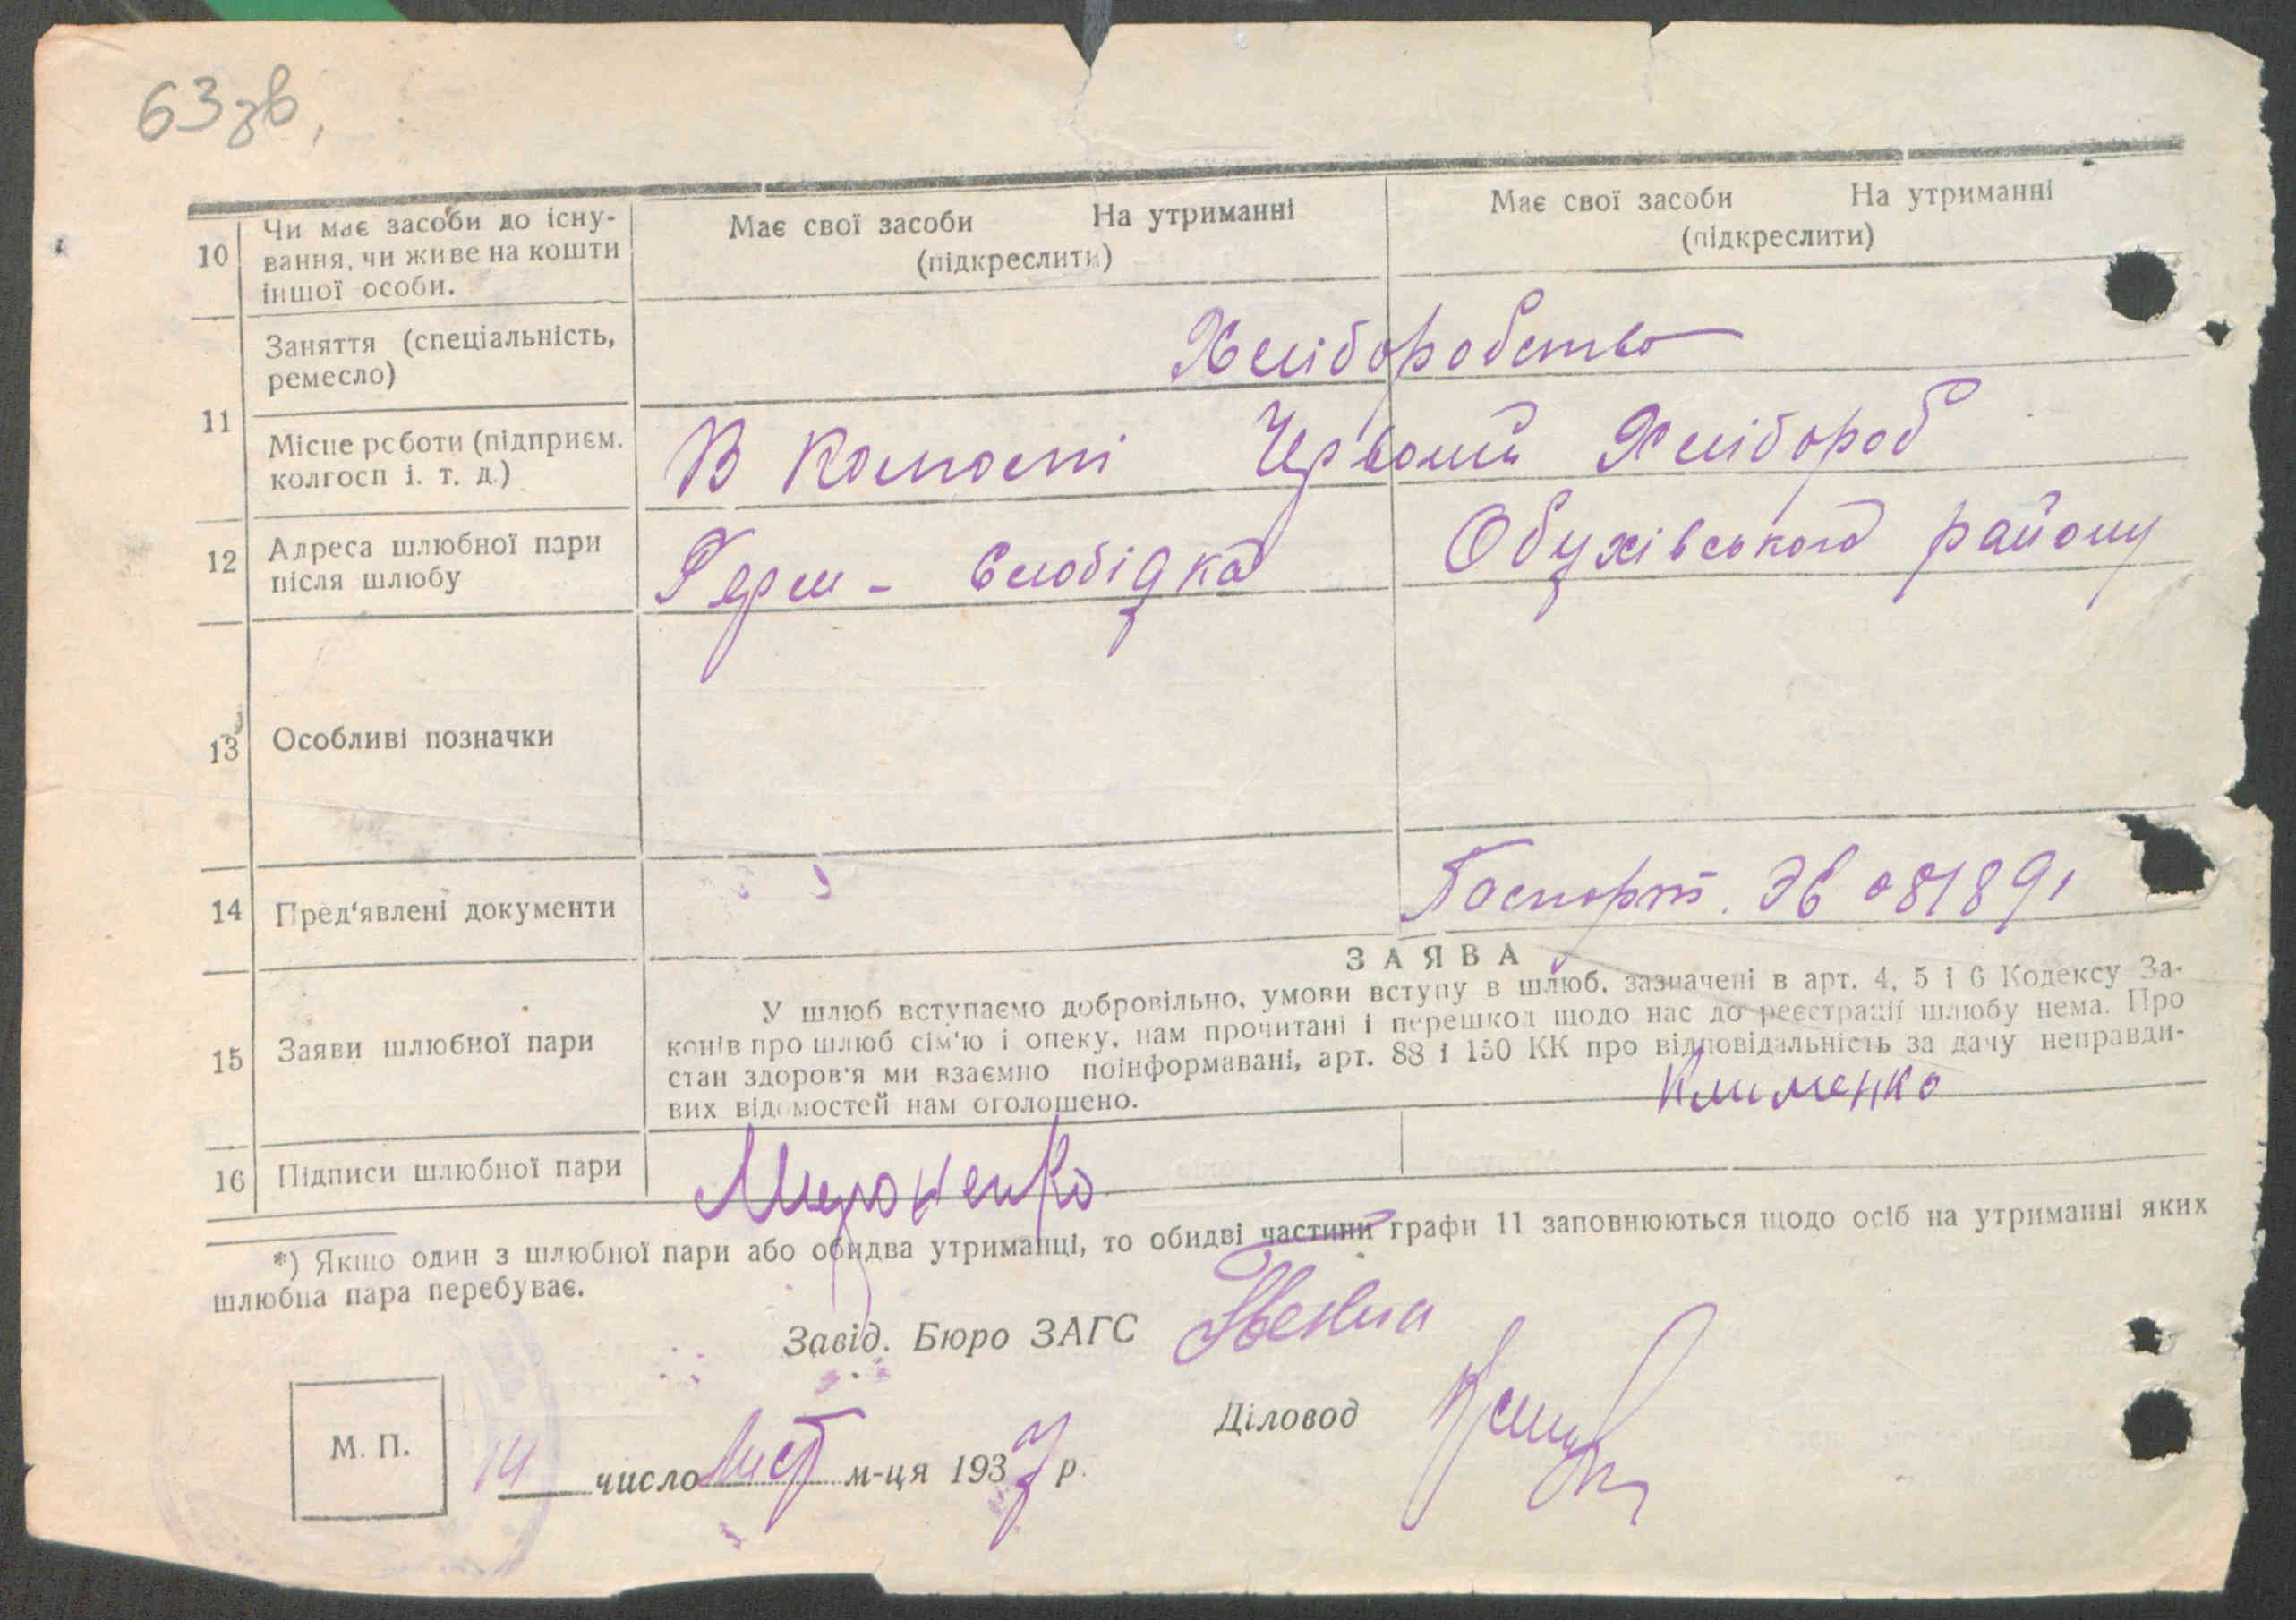 63зв,
10 Чи має засоби до існу-
вання, чи живе на кошти
іншої особи.
Має свої засоби На утриманні
(підкреслити)
Має свої засоби На утриманні
(підкреслити)
11 Заняття (спеціальність,
ремесло)
Хліборобство
Місце роботи (підприєм.
колгосп і. т. д.)
В Колгоспі Червоний Хлібороб
12 Адреса шлюбної пари
після шлюбу
Герм-Слобідка Обухівського району
13 Особливі позначки
14 Пред'явлені документи
Паспорт. ЭВ 081891
15 Заяви шлюбної пари
ЗАЯВА
У шлюб вступаємо добровільно, умови вступу в шлюб, зазначені в арт. 4, 5 і 6 Кодексу За-
конів про шлюб сім'ю і опеку, нам прочитані і перешкод щодо нас до реєстрації шлюбу нема. Про
стан здоров'я ми взаємно поінформавані, арт. 88 і 150 КК про відповідальність за дачу неправди-
вих відомостей нам оголошено.
Клименко
16 Підписи шлюбної пари
Мироненко
*) Якщо один з шлюбної пари або обидва утриманці, то обидві частини графи 11 заповнюються щодо осіб на утриманні яких
шлюбна пара перебуває.
Завід. Бюро ЗАГС
Діловод
М. П.
14 число Лист м-ця 1937 р.